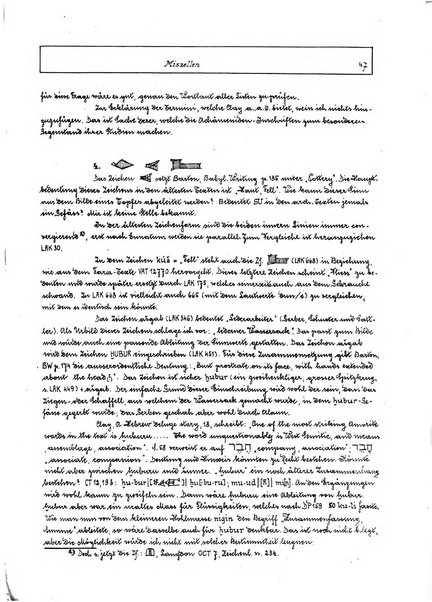 Miszellen 47
für diese Frage wäre es gut, genau den Wortlaut aller Listen zu prüfen.
Zur Erklärung der Termini, welche Clay a.a.O. bietet, weiss ich nichts hin-
zuzufügen. Das ist Sache derer, welche die Achämeniden-Inschriften zum besonderen
Gegenstand ihrer Studien machen.
Das Zeichen setzt Barton, Babyl. Writing p. 185 unter „Pottery". Die Haupt-
bedeutung dieses Zeichens in den ältesten Texten ist „Haut, Fell". Wie kann dieser Sinn
aus dem Bilde eines Topfes abgeleitet werden? Bedeutet SU in den arch. Texten jemals
ein Gefäss? Mir ist keine Stelle bekannt.
In der ältesten Zeichenform sind die beiden innern Linien immer con-
vergierend, erst nach Eannatum werden sie parallel. Zum Vergleiche ist heranzuziehen
LAK 30.
Zu dem Zeichen kuš = „Fell" steht auch die Lf. (LAK 668) in Beziehung,
wie aus dem Fara-Texte VAT 12770 hervorgeht. Dieses letztere Zeichen scheint „Vliess" zu be-
deuten und wurde später ersetzt durch LAK 173, welches seinerseits auch aus dem Gebrauche
schwand. Zu LAK 668 ist vielleicht auch 665 (mit dem Lautwerte sun/e) zu vergleichen,
mit dem es identisch sein könnte.
Das Zeichen ašgab (LAK 346) bedeutet „Lederarbeiter" (Gerber, Schuster und Satt-
ler). Als Urbild dieses Zeichens schlage ich vor: „lederner Wassersack". Das passt zum Bilde
und würde auch eine passende Ableitung der Sinnwerte gestatten. Das Zeichen ašgab
wird dem Zeichen HUBUR eingeschrieben (LAK 485). Für diese Zusammensetzung gibt Barton,
BW p. 174 die ausserordentliche Deutung: „But prostrate on its face, with hands extended
about the head". Das Zeichen ist sicher ḫubur (ein zweihenkliger, grosser Spitzkrug,
LAK 449) + ašgab. Der einfache Grund dieser Einschreibung wird wohl der sein, dass das
Ziegen- oder Schaffell, aus welchem der Wassersack gemacht wurde, in dem ḫubur-Ge-
fässe gegerbt wurde; das Gerben geschah aber wohl durch Alaun.
Clay, A Hebrew Deluge Story, 18, schreibt: „One of the most striking Amorite
words in the text is ḫuburu ..... The word unquestionably is West Semitic, and means
„assemblage, association". S. 58 verweist er auf חֶבֶר „company, association", חָבַר
„associate, companion". Deutung und Hinweis könnten zu Recht bestehen. Könnte
nicht aber zwischen ḫuburu und summer. „ḫubur" ein noch älterer Zusammenhang
bestehen? CT 12, 19b: ḫu-bur [] ḫu[-bu-ru]; mu-ud [] mìn. An den Ergänzungen
wird wohl kaum zu zweifeln sein. Dann wäre ḫuburu eine Ableitung von ḫubur.
ḫubur aber war ein uraltes Mass für Flüssigkeiten, welches nach DP 159 50 ku-li fasst.
Wie man nun von dem kleineren Hohlmasse nigin den Begriff „Zusammenfassung,
Summe" ableitete, so wäre dasselbe auch für ḫubur denkbar. Das ist noch nicht belegt,
aber die Möglichkeit würde ich nicht mit solcher Bestimmtheit leugnen.
Doch s. jetzt die Lf.: Langdon OCT 7, Zeichenl. n. 234.